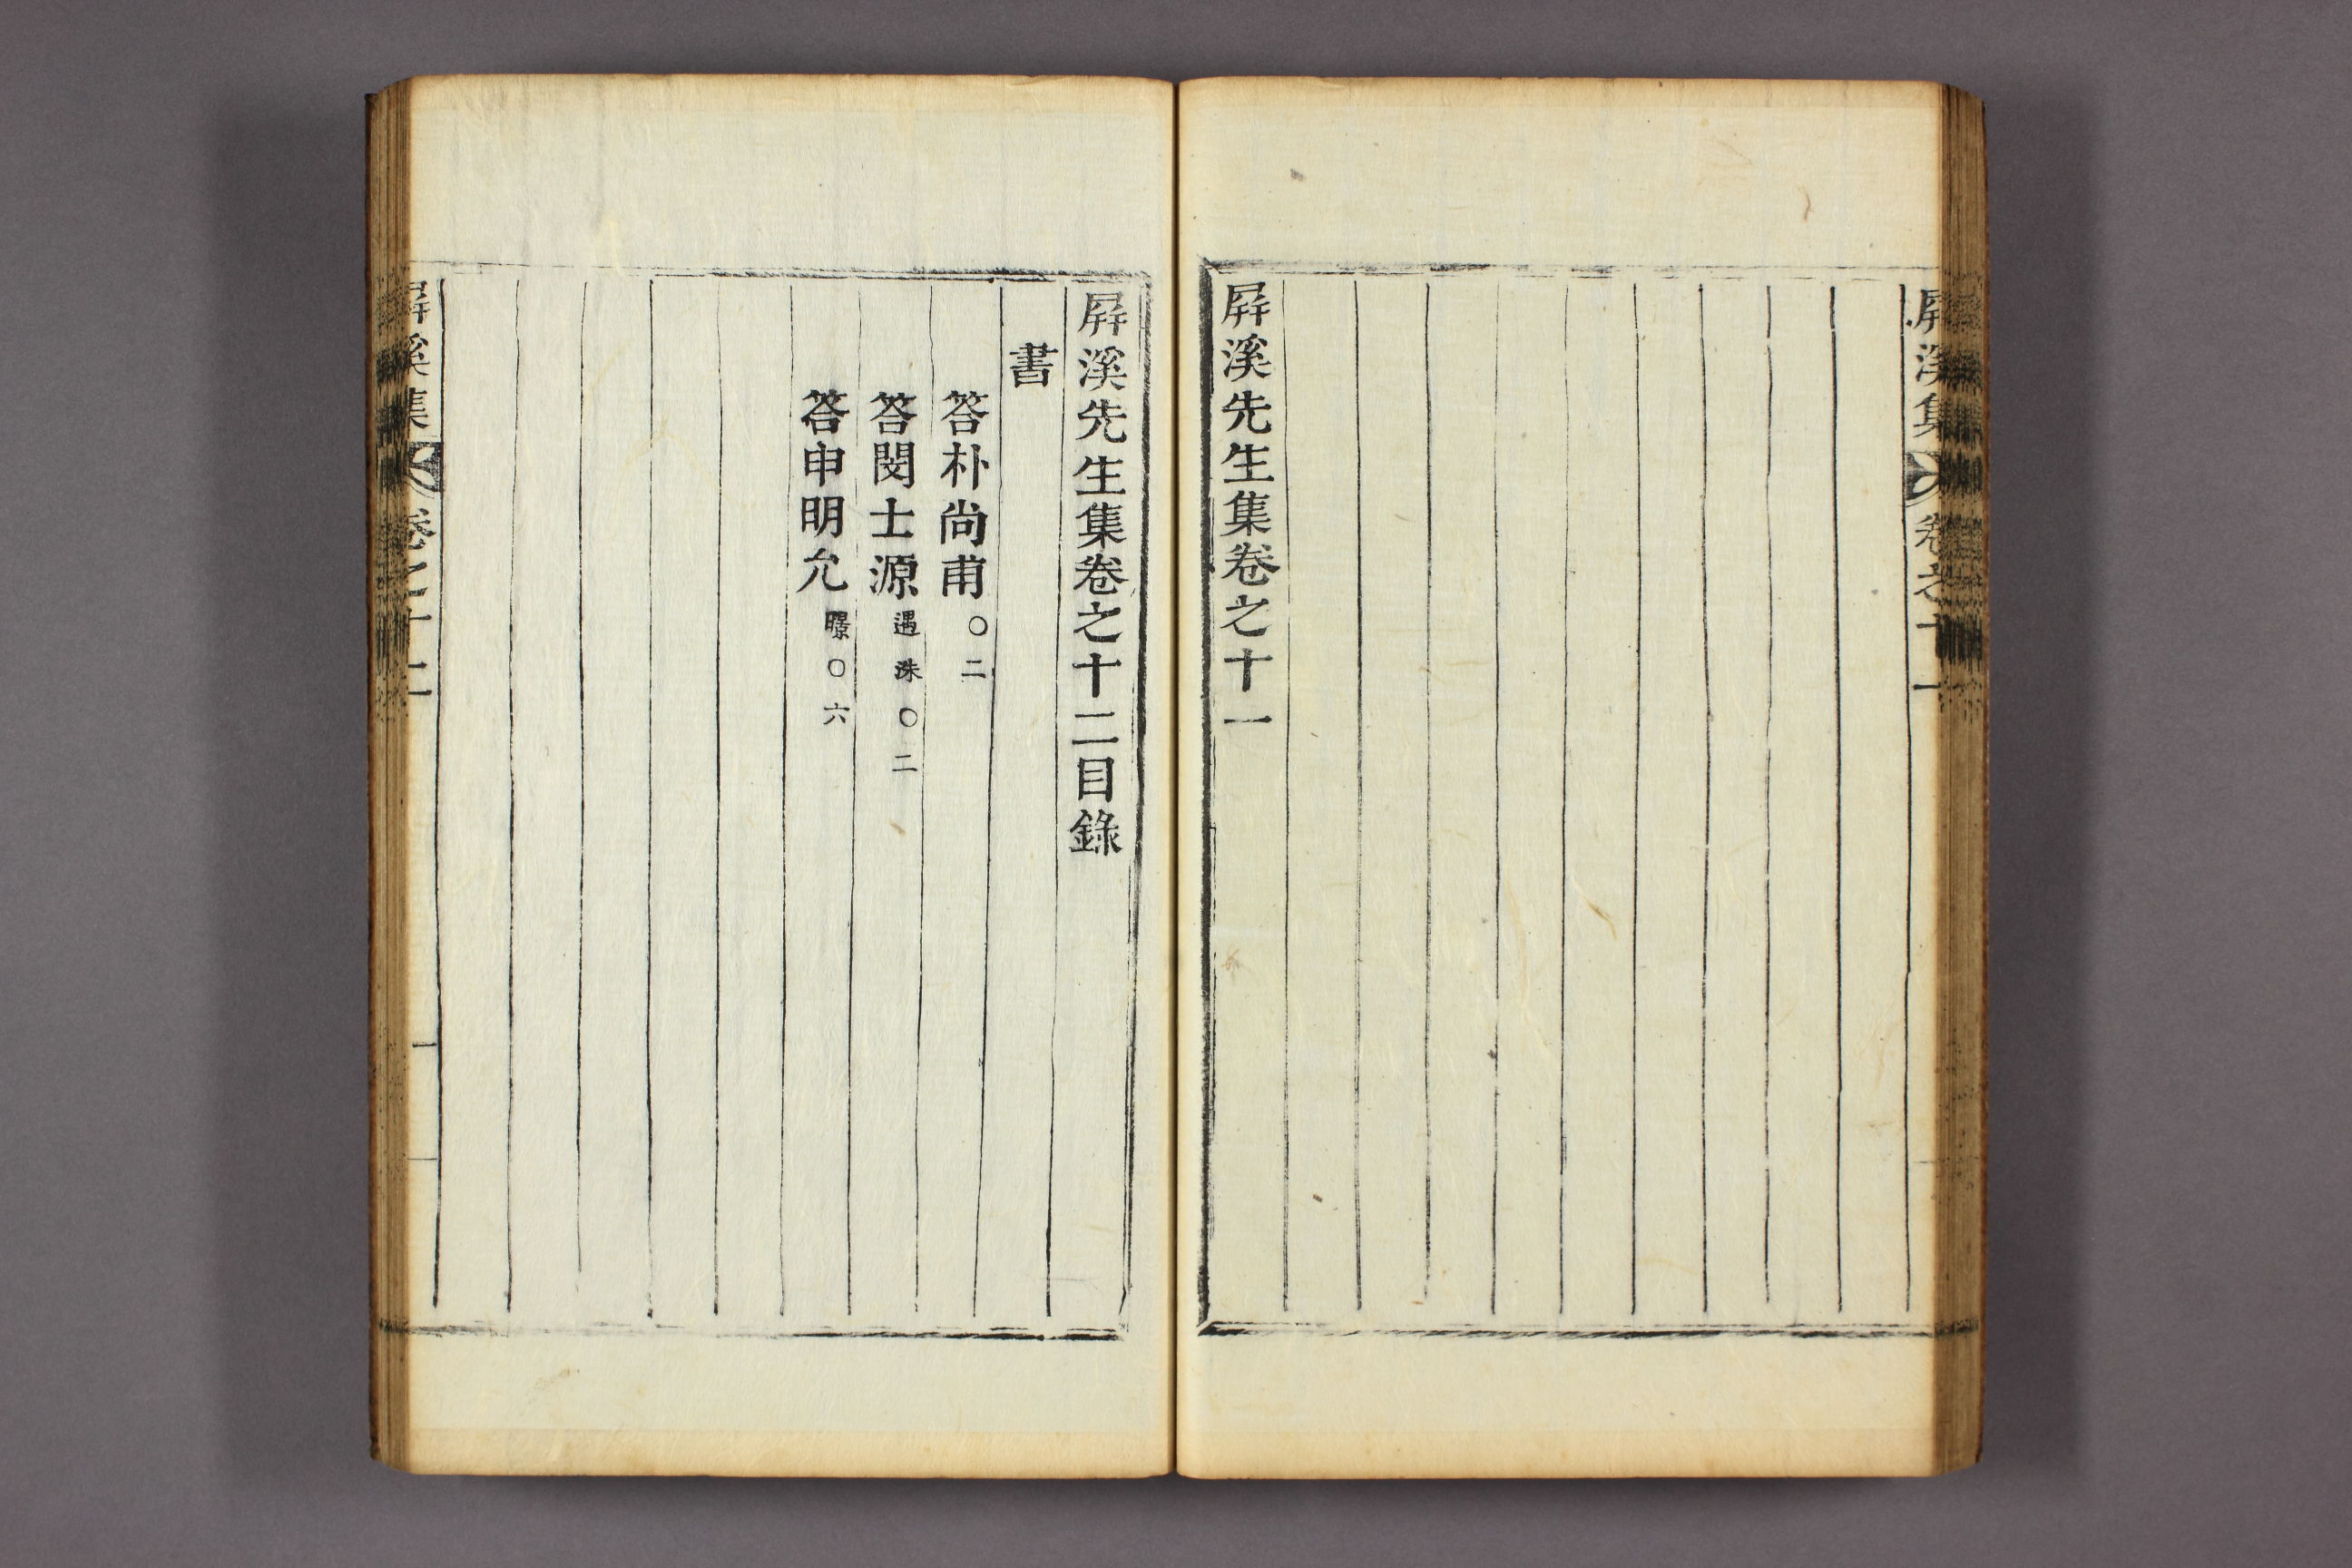 屛溪集 卷之十一
屛溪先生集卷之十一
屛溪先生集卷之十二目錄
書
答朴尙甫 ○二
答閔士源 遇洙○二
答申明允 暻○六
屛溪集 卷之十二 一